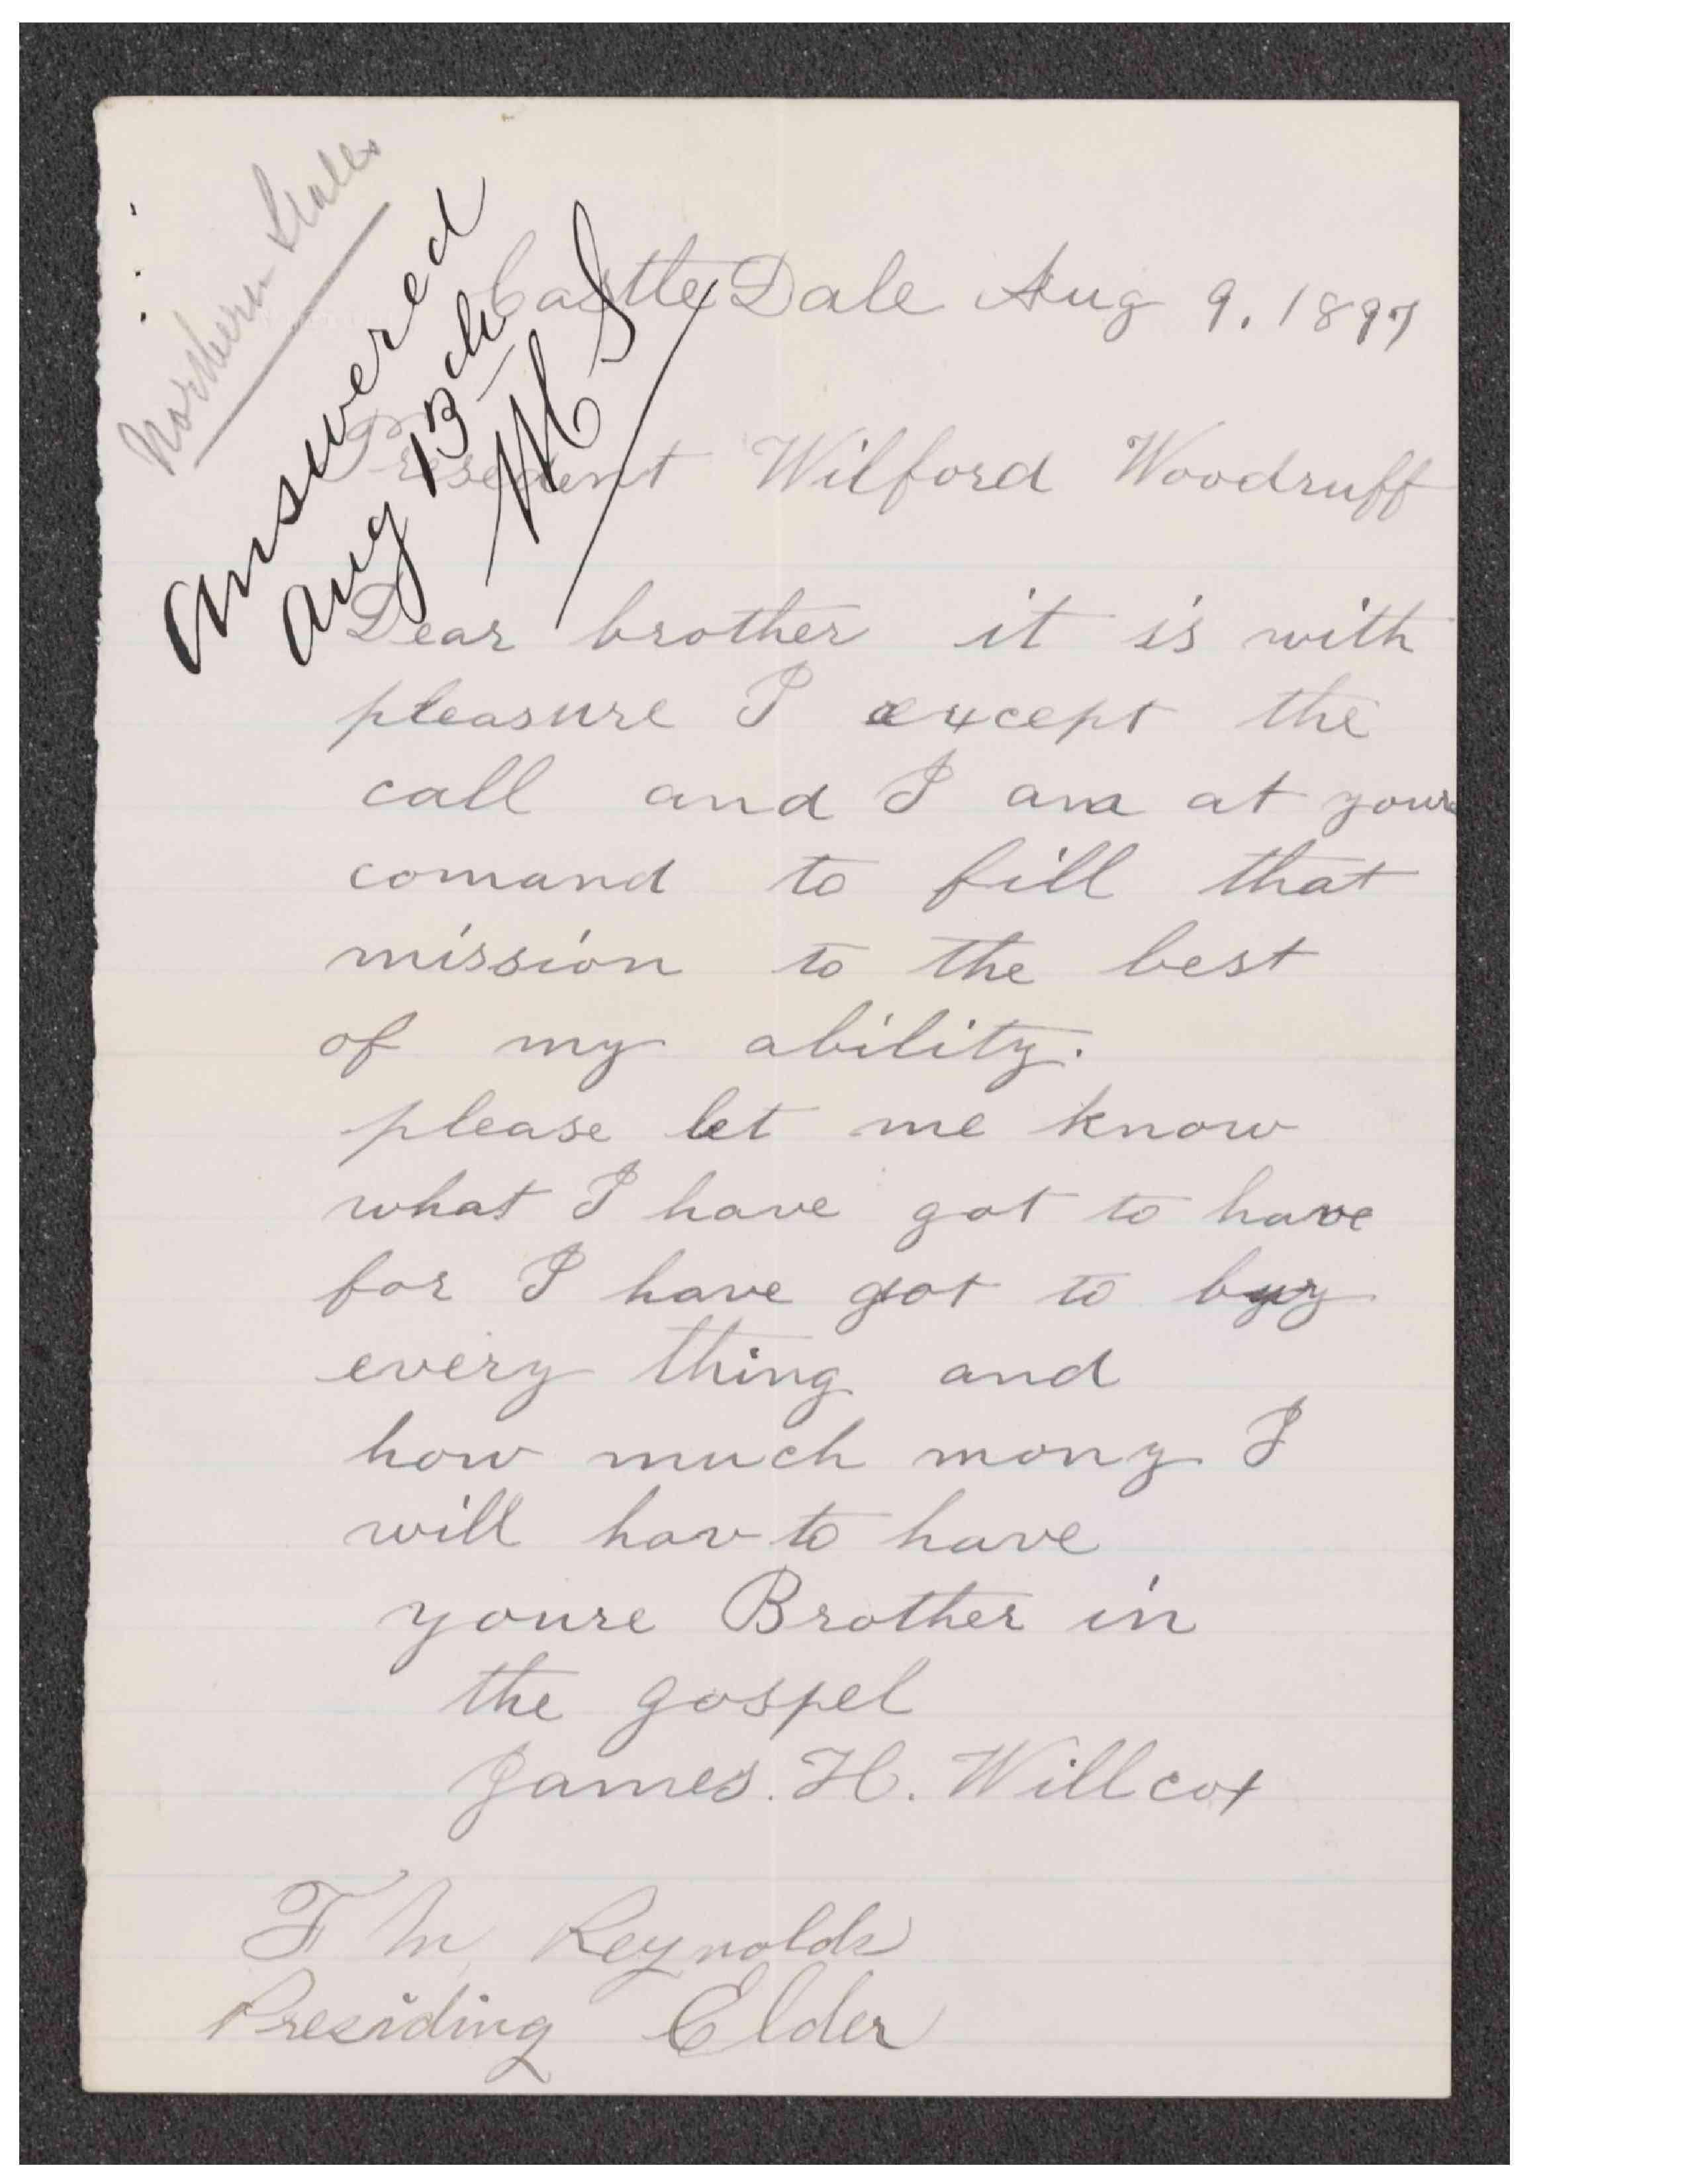 Northern States
answered
Aug 13th
Castle Dale Aug 9. 1897
Presedent Wilford Woodruff
Dear brother it is with
pleasure I except the
call and I am at youre
comand to fill that
mission to the best
of my ability.
please let me know
what I have got to have
for I have got to buy
every thing and
how much mony I
will hav to have
youre Brother in
the gospel
James. H. Willcox
Reynolds
Presiding Elder